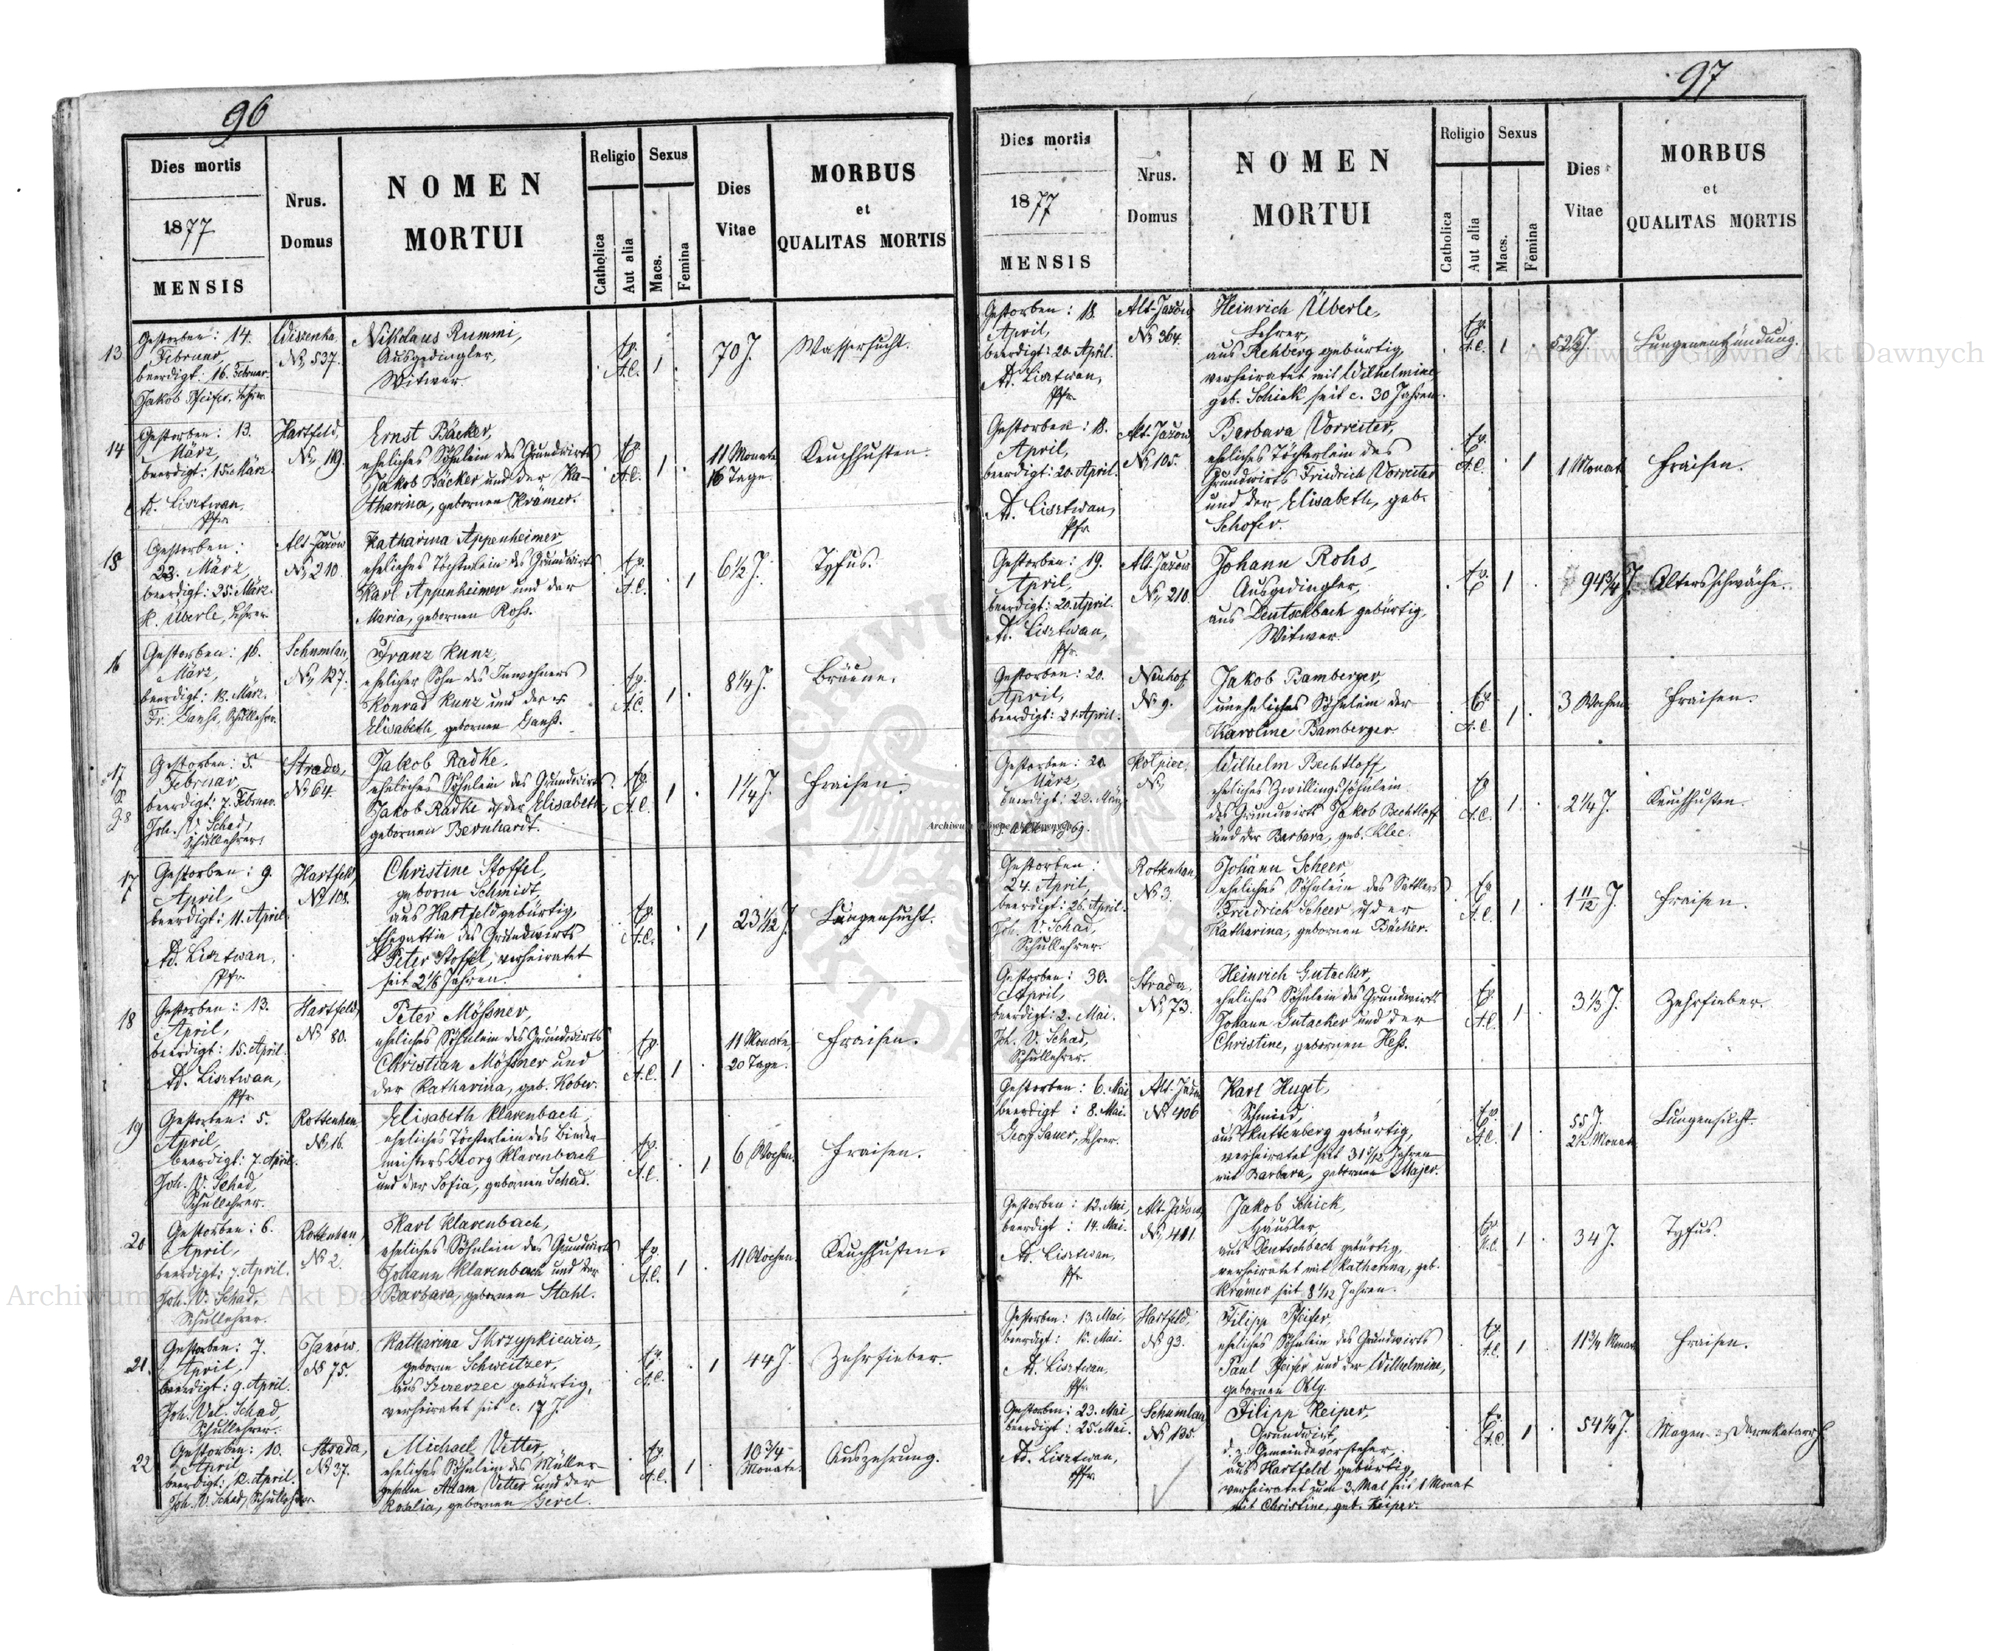 96
Dies mortis
1877
MENSIS
Nrus.
Domus
NOMEN
MORTUI
Religio
Catholica
Aut alia
Sexus
Macs.
Femina
Dies
Vitae
MORBUS
et
QUALITAS MORTIS
13
Gestorben: 14.
Februar,
beerdigt: 16. Februar.
Jakob Pfeifer, Lehrer
Wiszenka
No 537.
Nikolaus Rummi,
Ausgedingler,
Witwer.
Ev.
A.C.
1
70 J.
Wassersucht.
14
Gestorben: 13.
März,
beerdigt: 15. März.
Ad. Lisztwan,
Pfr.
Hartfeld,
No 119.
Ernst Bäcker,
eheliches Söhnlein des Grundwirts
Jakob Bäcker und der Ka-
tharina, gebornen Krämer.
Ev.
A.C.
1
11 Monate
16 Tage.
Keuchhusten.
15
Gestorben:
23. März,
beerdigt: 25. März.
K. Überle, Lehrer
Alt-Jazow
No 210.
Katharina Appenheimer,
eheliches Töchterlein des Grundwirts
Karl Appenheimer und der
Maria, gebornen Rohs.
Ev.
A.C.
1
6½ J.
Tyfus.
16
Gestorben: 16.
März,
beerdigt: 18. März.
Fr. Ganss, Schullehrer.
Schumlau,
No 127.
Franz Kunz,
ehelicher Sohn des Inwohners
Konrad Kunz und der
Elisabeth, gebornen Ganss.
Ev.
A.C.
1
8¼ J.
Bräune.
17
Gestorben: 5.
Februar,
beerdigt: 7. Februar.
Joh. V. Schad,
Schullehrer,
Strada,
No 64.
Jakob Radke,
eheliches Söhnlein des Grundwirts
Jakob Radke u. der Elisabeth,
gebornen Bernhardt.
Ev.
A.C.
1
1¼ J.
Fraisen.
17
Gestorben: 9.
April,
beerdigt: 11. April
Ad. Lisztwan,
Pfr.
Hartfeld,
No 108.
Christine Stoffel,
geborne Schmidt,
aus Hartfeld gebürtig,
Ehegattin des Grundwirts
Peter Stoffel, verheiratet
seit 2 1/6 Jahren.
Ev.
A.C.
1
23 1/12 J.
Lungensucht.
18
Gestorben: 13.
April,
beerdigt: 15. April.
Ad. Lisztwan,
Pfr.
Hartfeld,
No 80.
Peter Mößner,
eheliches Söhnlein des Grundwirts
Christian Mößner und
der Katharina, geb. Kober.
Ev.
A.C.
1
11 Monate,
20 Tage.
Fraisen.
19
Gestorben: 5.
April,
beerdigt: 7. April.
Joh. V. Schad,
Schullehrer.
Rottenhan
No 16.
Elisabeth Klarenbach,
eheliches Töchterlein des Binder-
meisters Georg Klarenbach
und der Sofia, gebornen Schad.
Ev.
A.C.
1
6 Wochen.
Fraisen.
20
Gestorben: 6.
April,
beerdigt: 7. April.
Joh. V. Schad,
Schullehrer.
Rottenhan,
No 2.
Karl Klarenbach,
eheliches Söhnlein des Grundwirts
Johann Klarenbach und der
Barbara, gebornen Stahl.
Ev.
A.C.
1
11 Wochen.
Keuchhusten.
21.
Gestorben: 7.
April,
beerdigt: 9. April.
Joh. Val. Schad,
Schullehrer.
Janów.
No 75.
Katharina Skrzypkiewicz,
geborne Schweitzer,
aus Szczerzec gebürtig,
verheiratet seit c. 17 J.
Ev.
A.C.
1
44 J.
Zehrfieber.
22
Gestorben: 10.
April
beerdigt: 12. April.
Joh. V. Schad, Schullehrer.
Strada,
No 37.
Michael Vetter,
eheliches Söhnlein des Müller-
gesellen Adam Vetter und der
Rosalia, gebornen Gerel.
Ev.
A.C.
1
10 3/4
Monate.
Auszehrung.
97
Dies mortis
1877
MENSIS
Nrus.
Domus
NOMEN
MORTUI
Religio
Catholica
Aut alia
Sexus
Macs.
Femina
Dies
Vitae
MORBUS
et
QUALITAS MORTIS
Gestorben: 18.
April,
beerdigt: 20. April.
Ad. Lisztwan,
Pfr.
Alt-Jazow
No 364.
Heinrich Überle,
Lehrer,
aus Rehberg gebürtig,
verheiratet mit Wilhelmine,
geb. Schick seit c. 30 Jahren.
Ev.
A.C.
1
Lungenentzündung.
Gestorben: 18.
April,
beerdigt: 20. April.
Ad. Lisztwan,
Pfr.
Alt-Jazow,
No 105.
Barbara Vorreiter,
eheliches Töchterlein des
Grundwirts Friedrich Vorreiter
und der Elisabeth, geb.
Schofer.
Ev.
A.C.
1
1 Monat
Fraisen.
Gestorben: 19.
April,
beerdigt: 20. April.
Ad. Lisztwan,
Pfr.
Alt-Jazow
No 210.
Johann Rohs,
Ausgedingler,
aus Deutschbach gebürtig,
Witwer.
Ev.
1
94¾ J.
Altersschwäche.
Gestorben: 20.
April,
beerdigt: 21. April.
Neuhof
No 9.
Jakob Bamberger,
uneheliches Söhnlein der
Karoline Bamberger.
Ev.
A.C.
1
3 Wochen.
Fraisen.
Gestorben: 20.
März,
beerdigt: 22. März
Kolpiec.
No
Wilhelm Bechtloff,
eheliches Zwillings-Söhnlein
des Grundwirts Jakob Bechtloff
und der Barbara, geb. Klee.
Ev.
A.C.
1
2¼ J.
Keuchhusten.
Gestorben:
24. April,
beerdigt: 26. April.
Joh. V. Schad,
Schullehrer.
Rottenhan,
No 3.
Johann Scheer,
eheliches Söhnlein des Sattlers
Friedrich Scheer u. der
Katharina, gebornen Bäcker.
Ev.
A.C.
1
1 11/12 J.
Fraisen.
Gestorben: 30.
April,
beerdigt: 2. Mai.
Joh. V. Schad,
Schullehrer.
Strada,
No 73.
Heinrich Gutacker,
eheliches Söhnlein des Grundwirts
Johann Gutacker und der
Christine, gebornen Heß.
Ev.
A.C.
1
3⅓ J.
Zehrfieber.
Gestorben: 6. Mai
beerdigt: 8. Mai.
Georg Sauer, Lehrer.
Alt-Jazow
No 406
Karl Hugst,
Schmied,
aus Kuttenberg gebürtig,
verheiratet seit 31 Jahren
mit Barbara, gebornen Majer.
Ev.
A.C.
1
55 J.
2½ Monate
Lungensucht.
Gestorben: 12. Mai,
beerdigt: 14. Mai.
Ad. Lisztwan,
Pfr.
Alt-Jazow,
No 411
Jakob Schick,
Häusler
aus Deutschbach gebürtig,
verheiratet mit Katharina, geb.
Krämer seit 8 1/12 Jahren.
Ev.
A.C.
1
34 J.
Tyfus.
Gestorben: 13. Mai,
beerdigt: 15. Mai.
Ad. Lisztwan,
Pfr.
Hartfeld,
No 93.
Filipp Pfeifer,
eheliches Söhnlein des Grundwirts
Paul Pfeifer und der Wilhelmine,
gebornen
Ev.
A.C.
1
11¾ Monate
Fraisen.
Gestorben: 23. Mai,
beerdigt: 25. Mai.
Ad. Lisztwan,
Pfr.
Schumlau
No 125.
Filipp Keiper,
Grundwirt,
d. z. Gemeindevorsteher,
aus Hartfeld gebürtig,
verheiratet zum 3. Mal seit 1 Monat
mit Christine, geb. Keiper.
Ev.
A.C.
1
54¼ J.
Magen- u. Darmkatarrh
Archiwum Główne Akt Dawnych
Archiwum Główne Akt Dawnych
Archiwum Główne Akt Dawnych